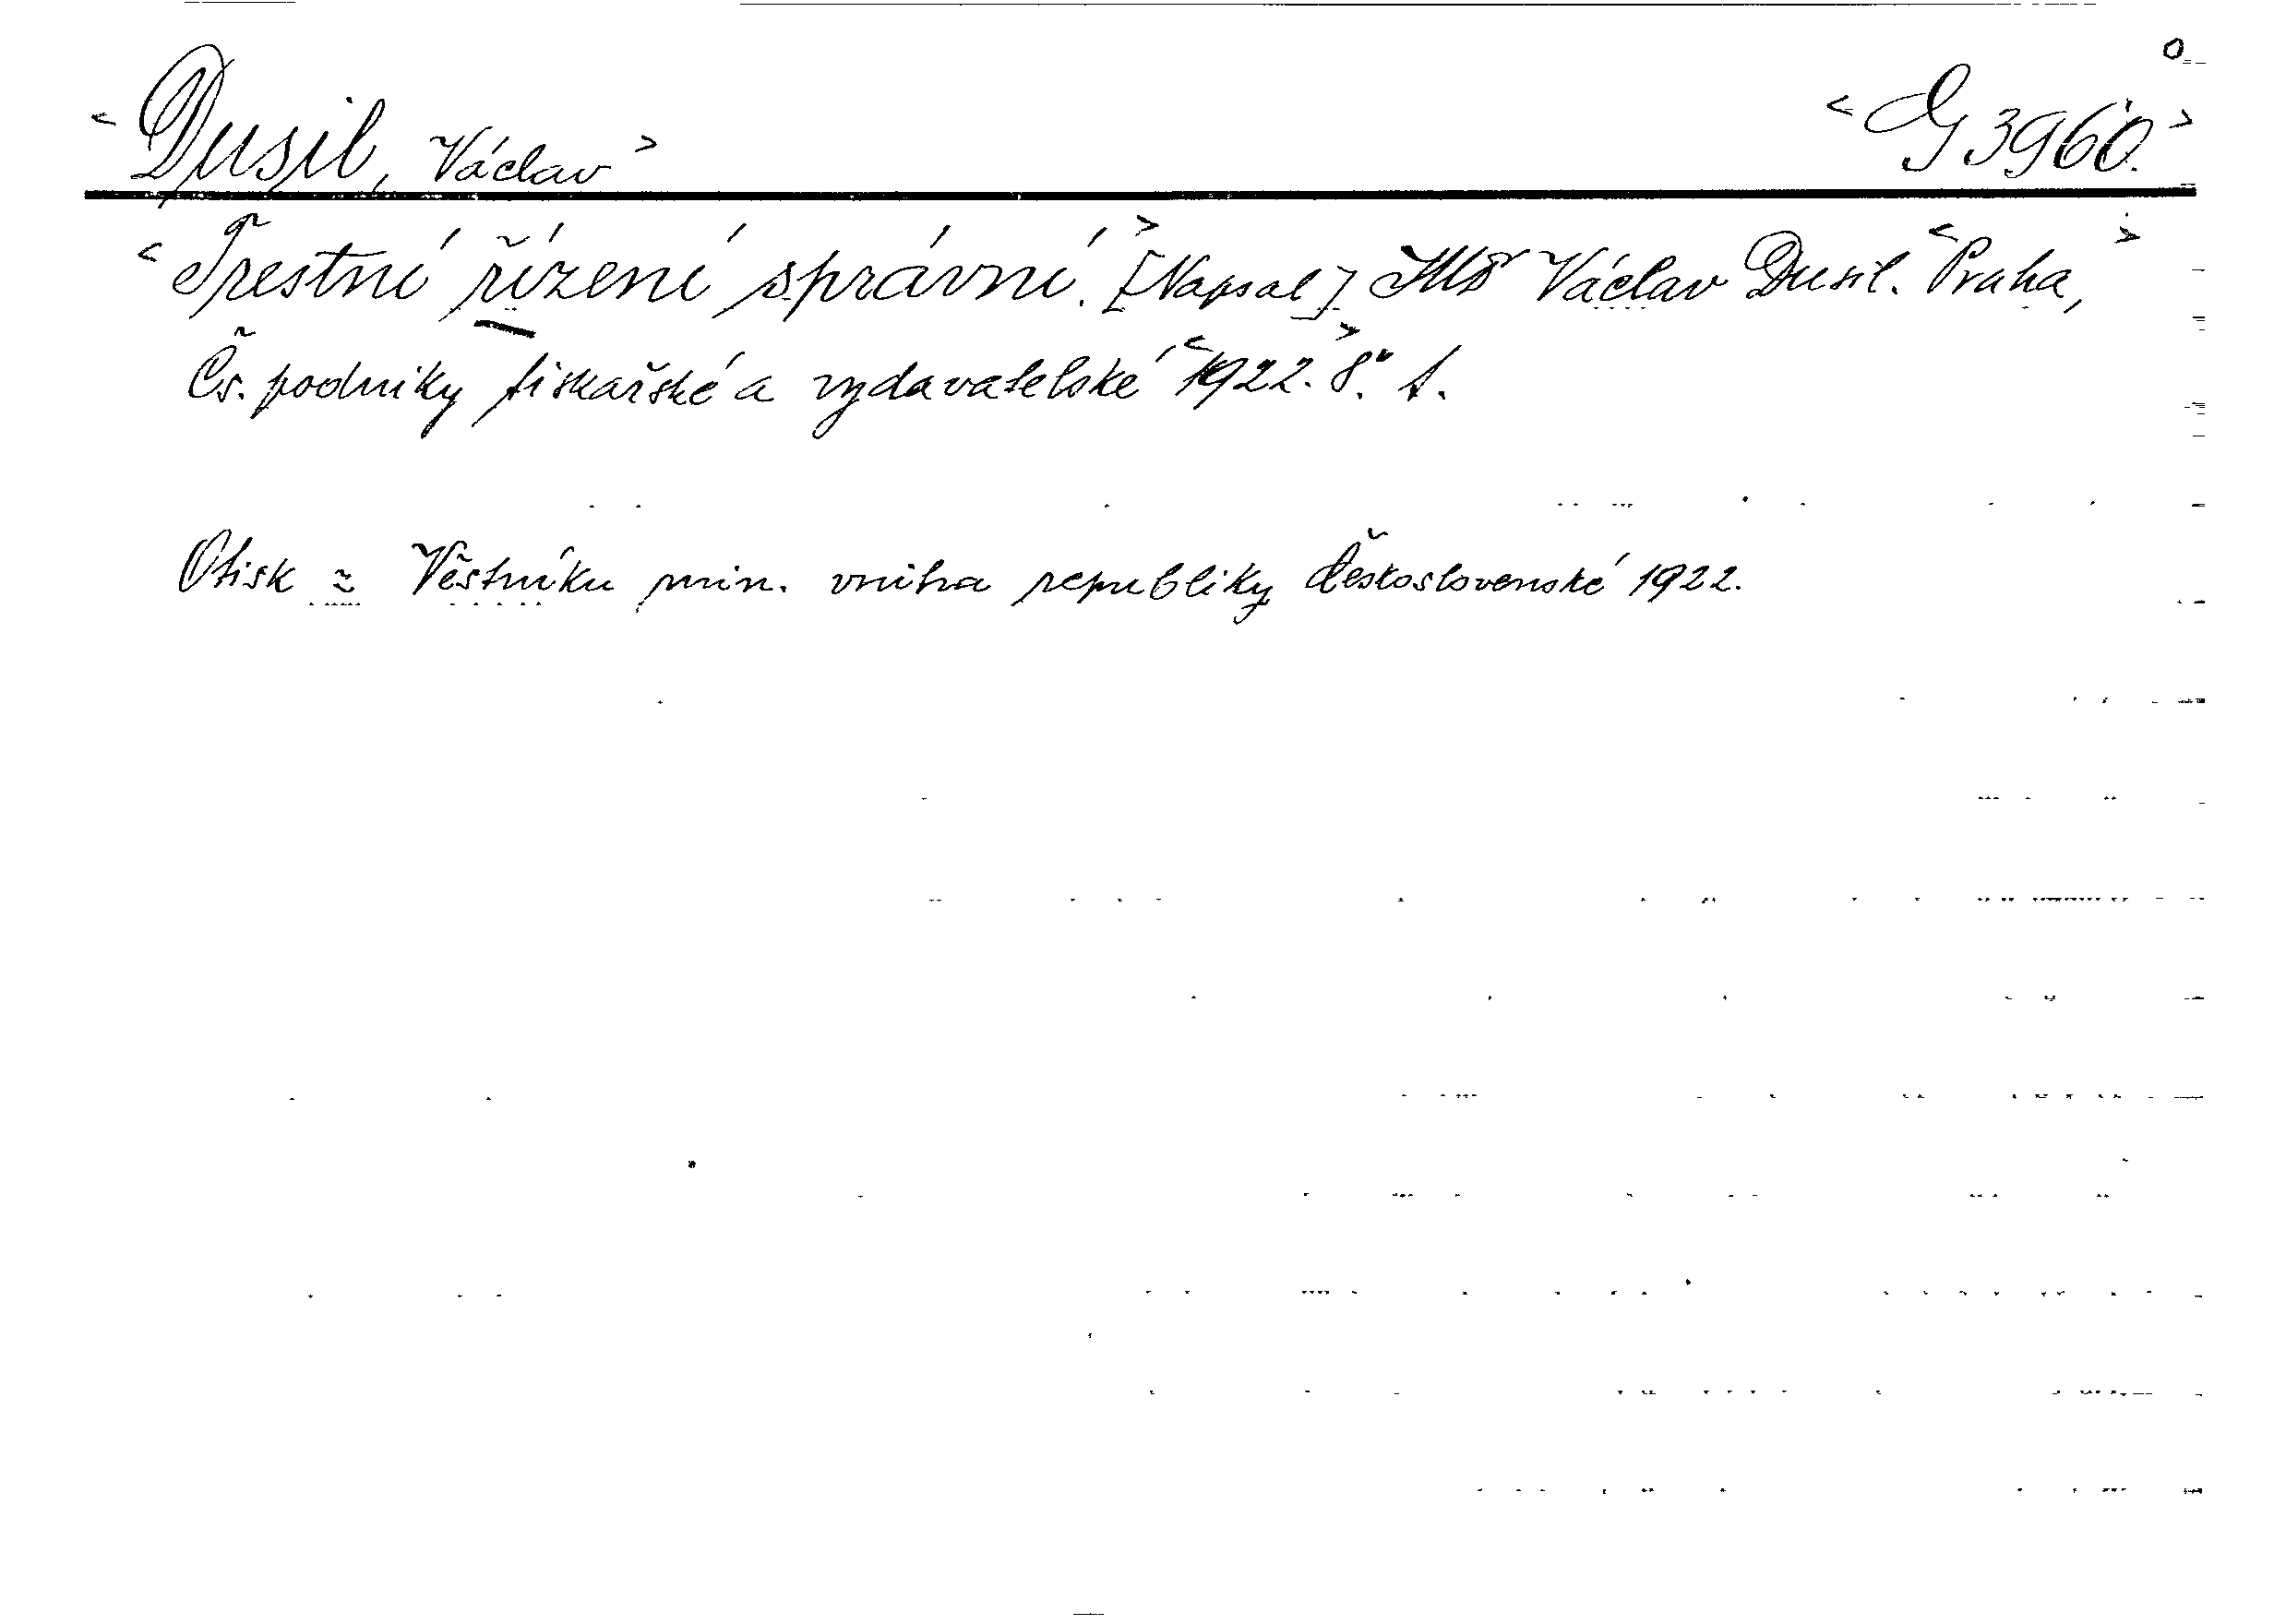 <Dusil, Václav> <G 3960.>
<Trestní řízení správní.> [Napsal] JUDr Václav Dusil. <Praha,>
Čs. podniky tiskařské a vydavatelské <1922.> 8°. 1.
Otisk z Věstníku min. vnitra republiky Československé 1922.